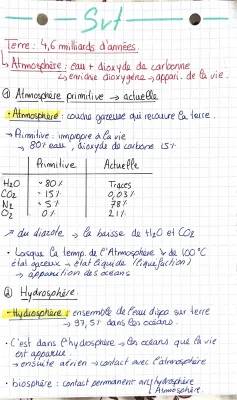 Svt
Terre : 4,6 milliards d'années.
↳ Atmosphère : eau + dioxyde de carbone
↳ enrichie dioxygène → appari. de la vie.
① Atmosphère primitive → actuelle
• Atmosphère : couche gazeuse qui recouvre la terre.
→ Primitive : impropre à la vie
→ 80% eau, dioxyde de carbone 15%
Primitive Actuelle
H2O ~ 80% Traces
CO2 ~ 15% 0,03%
N2 ~ 5% 78%
O2 0% 21%
↗ du diazote → la baisse de H2O et CO2
• Lorsque la temp. de l'Atmosphère ↘ de 100°C
état gazeux → état liquide (liquéfaction)
→ apparition des océans
② Hydrosphère.
• Hydrosphère : ensemble de l'eau dispo sur terre
→ 97,5% dans les océans.
• C'est dans l'hydrosphère → les océans que la vie
est apparue.
→ ensuite aérien → contact avec l'atmosphère
• biosphère : contact permanent avc hydrosphère
Atmosphère.